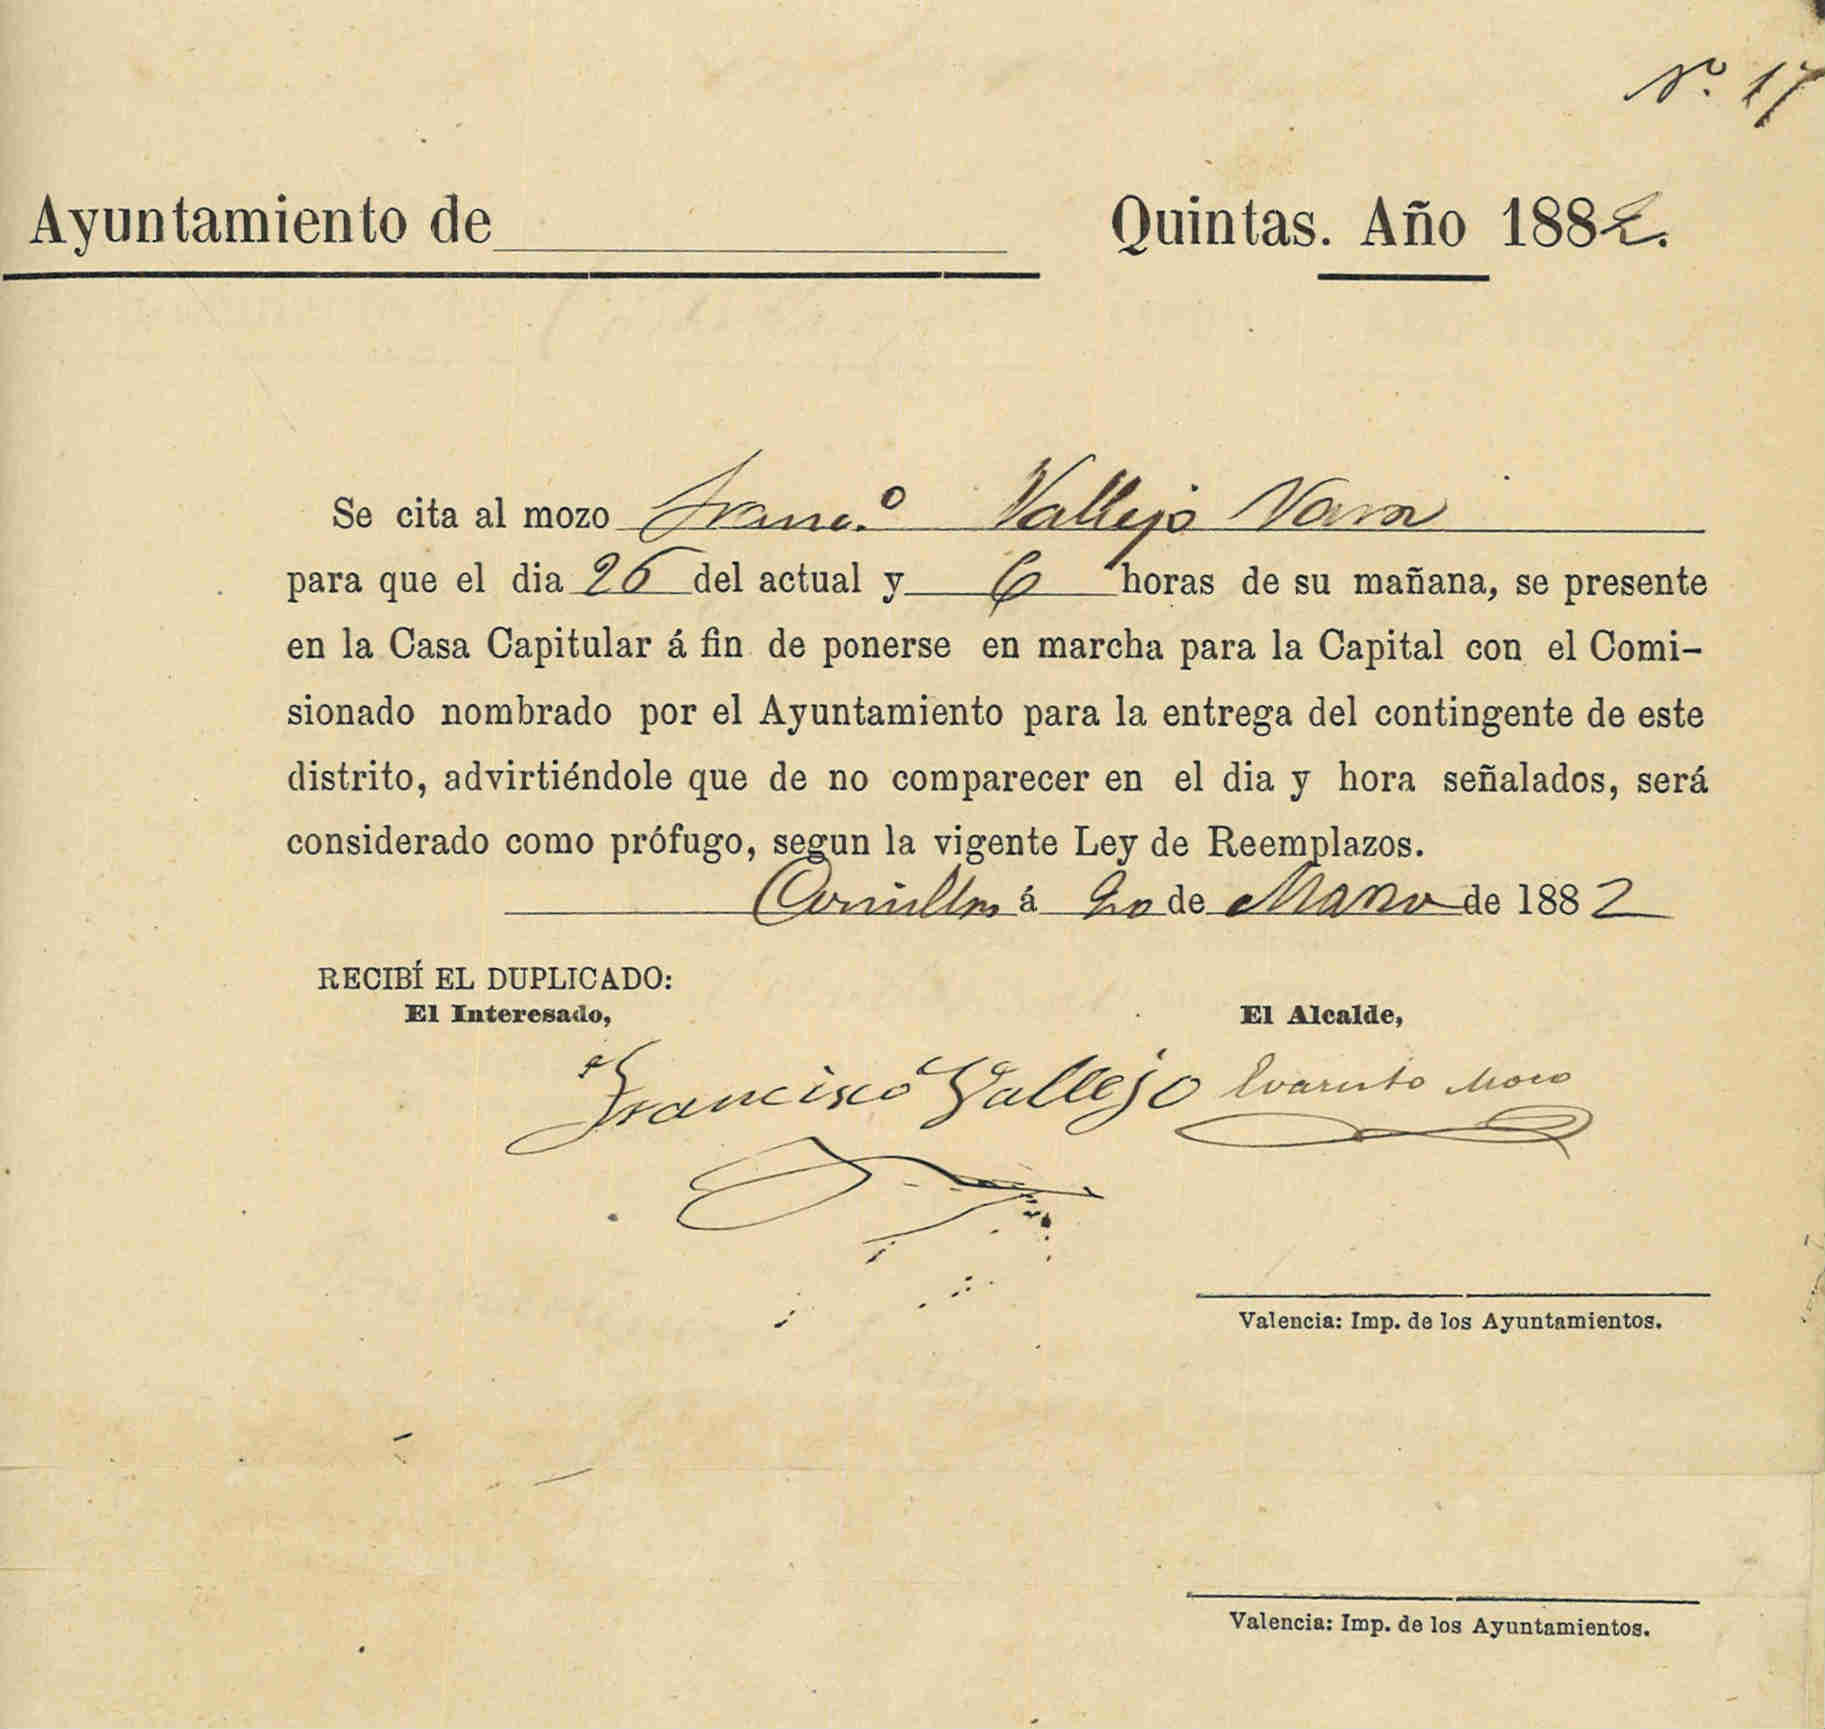 Nº 17
Ayuntamiento de Quintas. Año 1882.
Se cita al mozo Franc.º Vallejo Vara
para que el dia 26 del actual y 6 horas de su mañana, se presente
en la Casa Capitular á fin de ponerse en marcha para la Capital con el Comi-
sionado nombrado por el Ayuntamiento para la entrega del contingente de este
distrito, advirtiéndole que de no comparecer en el dia y hora señalados, será
considerado como prófugo, segun la vigente Ley de Reemplazos.
á 20 de Marzo de 1882
RECIBÍ EL DUPLICADO:
El Interesado, El Alcalde,
Francisco Vallejo Evaristo Moro
Valencia: Imp. de los Ayuntamientos.
Valencia: Imp. de los Ayuntamientos.